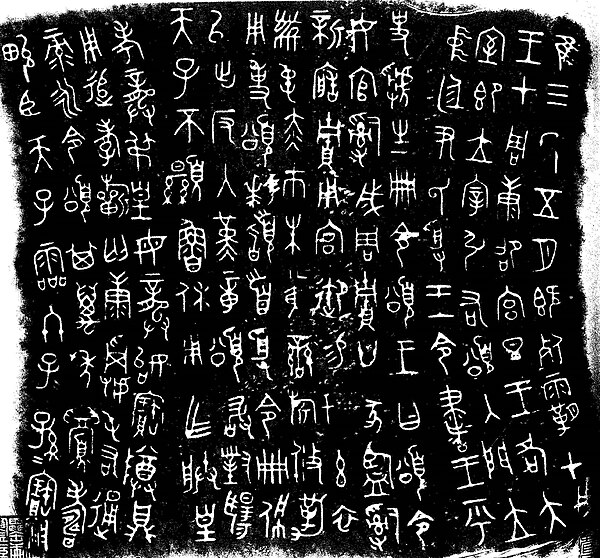 隹三年五月既死霸甲戌
王才周康卲宮旦王各大
室即立宰引右頌入門立
中廷尹氏受王令書王乎
史虢生冊令頌王曰頌令
女官𤔲成周貯廿家監𤔲
新造貯用宮御易女玄衣
黹屯赤巿朱黃䜌旂攸勒
用事頌拜稽首受令冊佩
以出反入堇章頌敢對揚
天子不顯魯休用乍朕皇
考龔弔皇母龔始寶尊鼎
用追孝祈匄康𩁹屯右通
彔永令頌其萬年眉壽
畯臣天子霝冬子子孫孫寶用